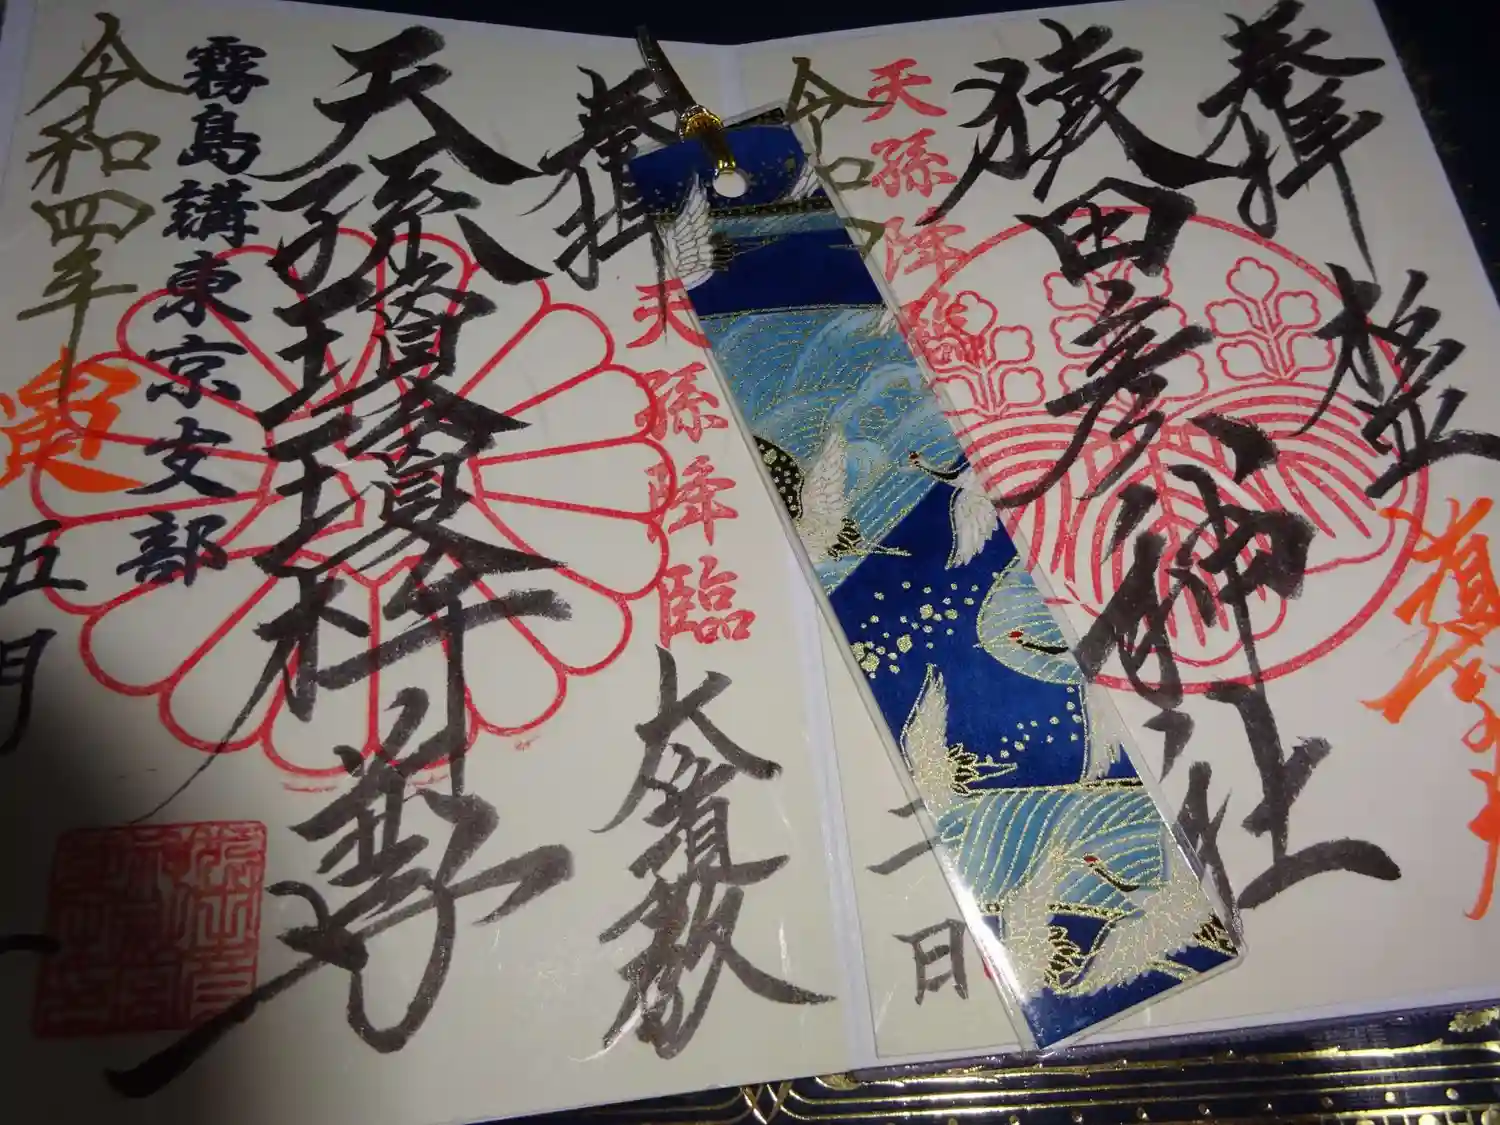 奉拝
猿田彦神社
天孫降臨
令和
二日
奉拝
天孫降臨
天孫瓊瓊杵尊
霧島講東京支部
令和四年
寅
五月